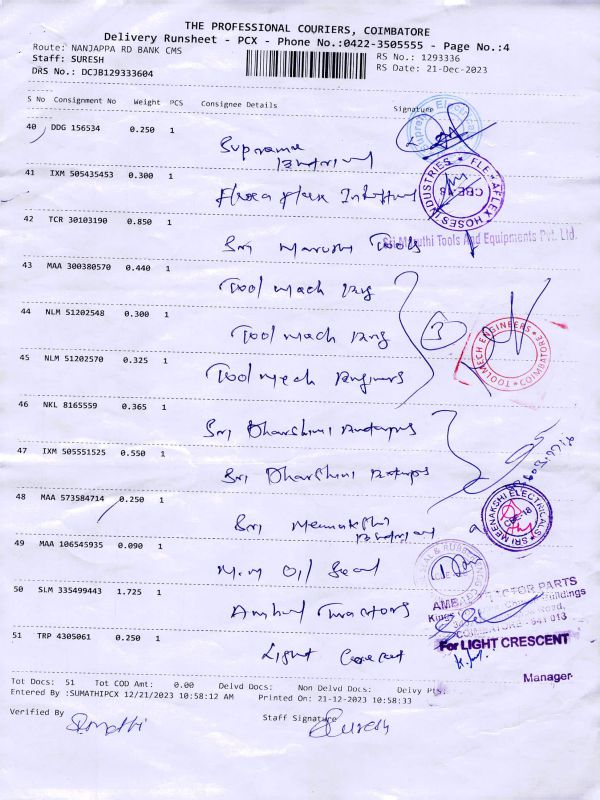 THE PROFESSIONAL COURIERS, COIMBATORE
Delivery Runsheet - PCX - Phone No.:0422-3505555 - Page No.:4
Route: NANJAPPA RD BANK CMS
RS No.: 1293336
Staff: SURESH
RS Date: 21-Dec-2023
DRS No.: DCJB129333604
S No Consignment No Weight PCS Consignee Details Signature
40 DDG 156534 0.250 1
Suprama
41 IXM 505435453 0.300 1
FLEXAFLEX HOSES INDUSTRIES CBE-18
42 TCR 30103190 0.850 1
Sri Maruthi Tools
Sri Maruthi Tools And Equipments Pvt. Ltd.
43 MAA 300380570 0.440 1
Tool mach Eng
44 NLM 51202548 0.300 1
Tool mach Eng
3
TOOLMECH ENGINEERS COIMBATORE
45 NLM 51202570 0.325 1
Tool mech Engineers
46 NKL 8165559 0.365 1
Sri Dharshini
47 IXM 505551525 0.550 1
Sri Dharshini
48 MAA 573584714 0.250 1
Sri Meenakshi
SRI MEENAKSHI ELECTRICALS CBE-18
49 MAA 106545935 0.090 1
M.M Oil Seal
50 SLM 335499443 1.725 1
Ambal Tractors
AMBAL TRACTOR PARTS
Kings Buildings
Road,
COIMBATORE - 641 018
51 TRP 4305061 0.250 1
Light Crescent
For LIGHT CRESCENT
Manager
Tot Docs: 51 Tot COD Amt: 0.00 Delvd Docs: Non Delvd Docs: Delvy Pts:
Entered By :SUMATHIPCX 12/21/2023 10:58:12 AM Printed On: 21-12-2023 10:58:33
Verified By
Staff Signature
Sumathi
Suresh